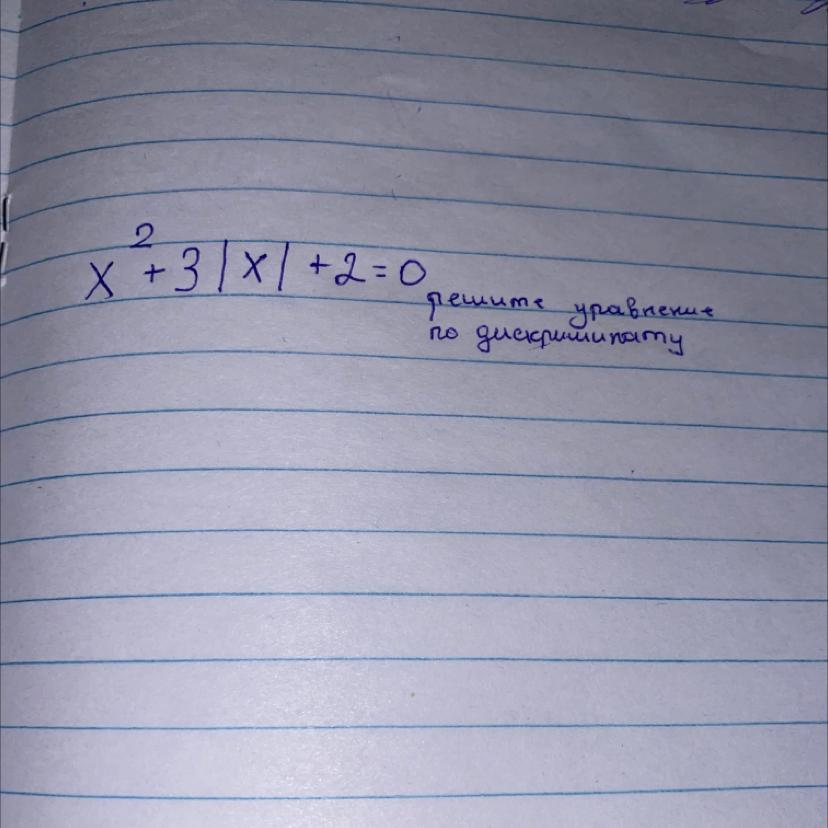 x² + 3|x| + 2 = 0
решите уравнение
по дискриминату